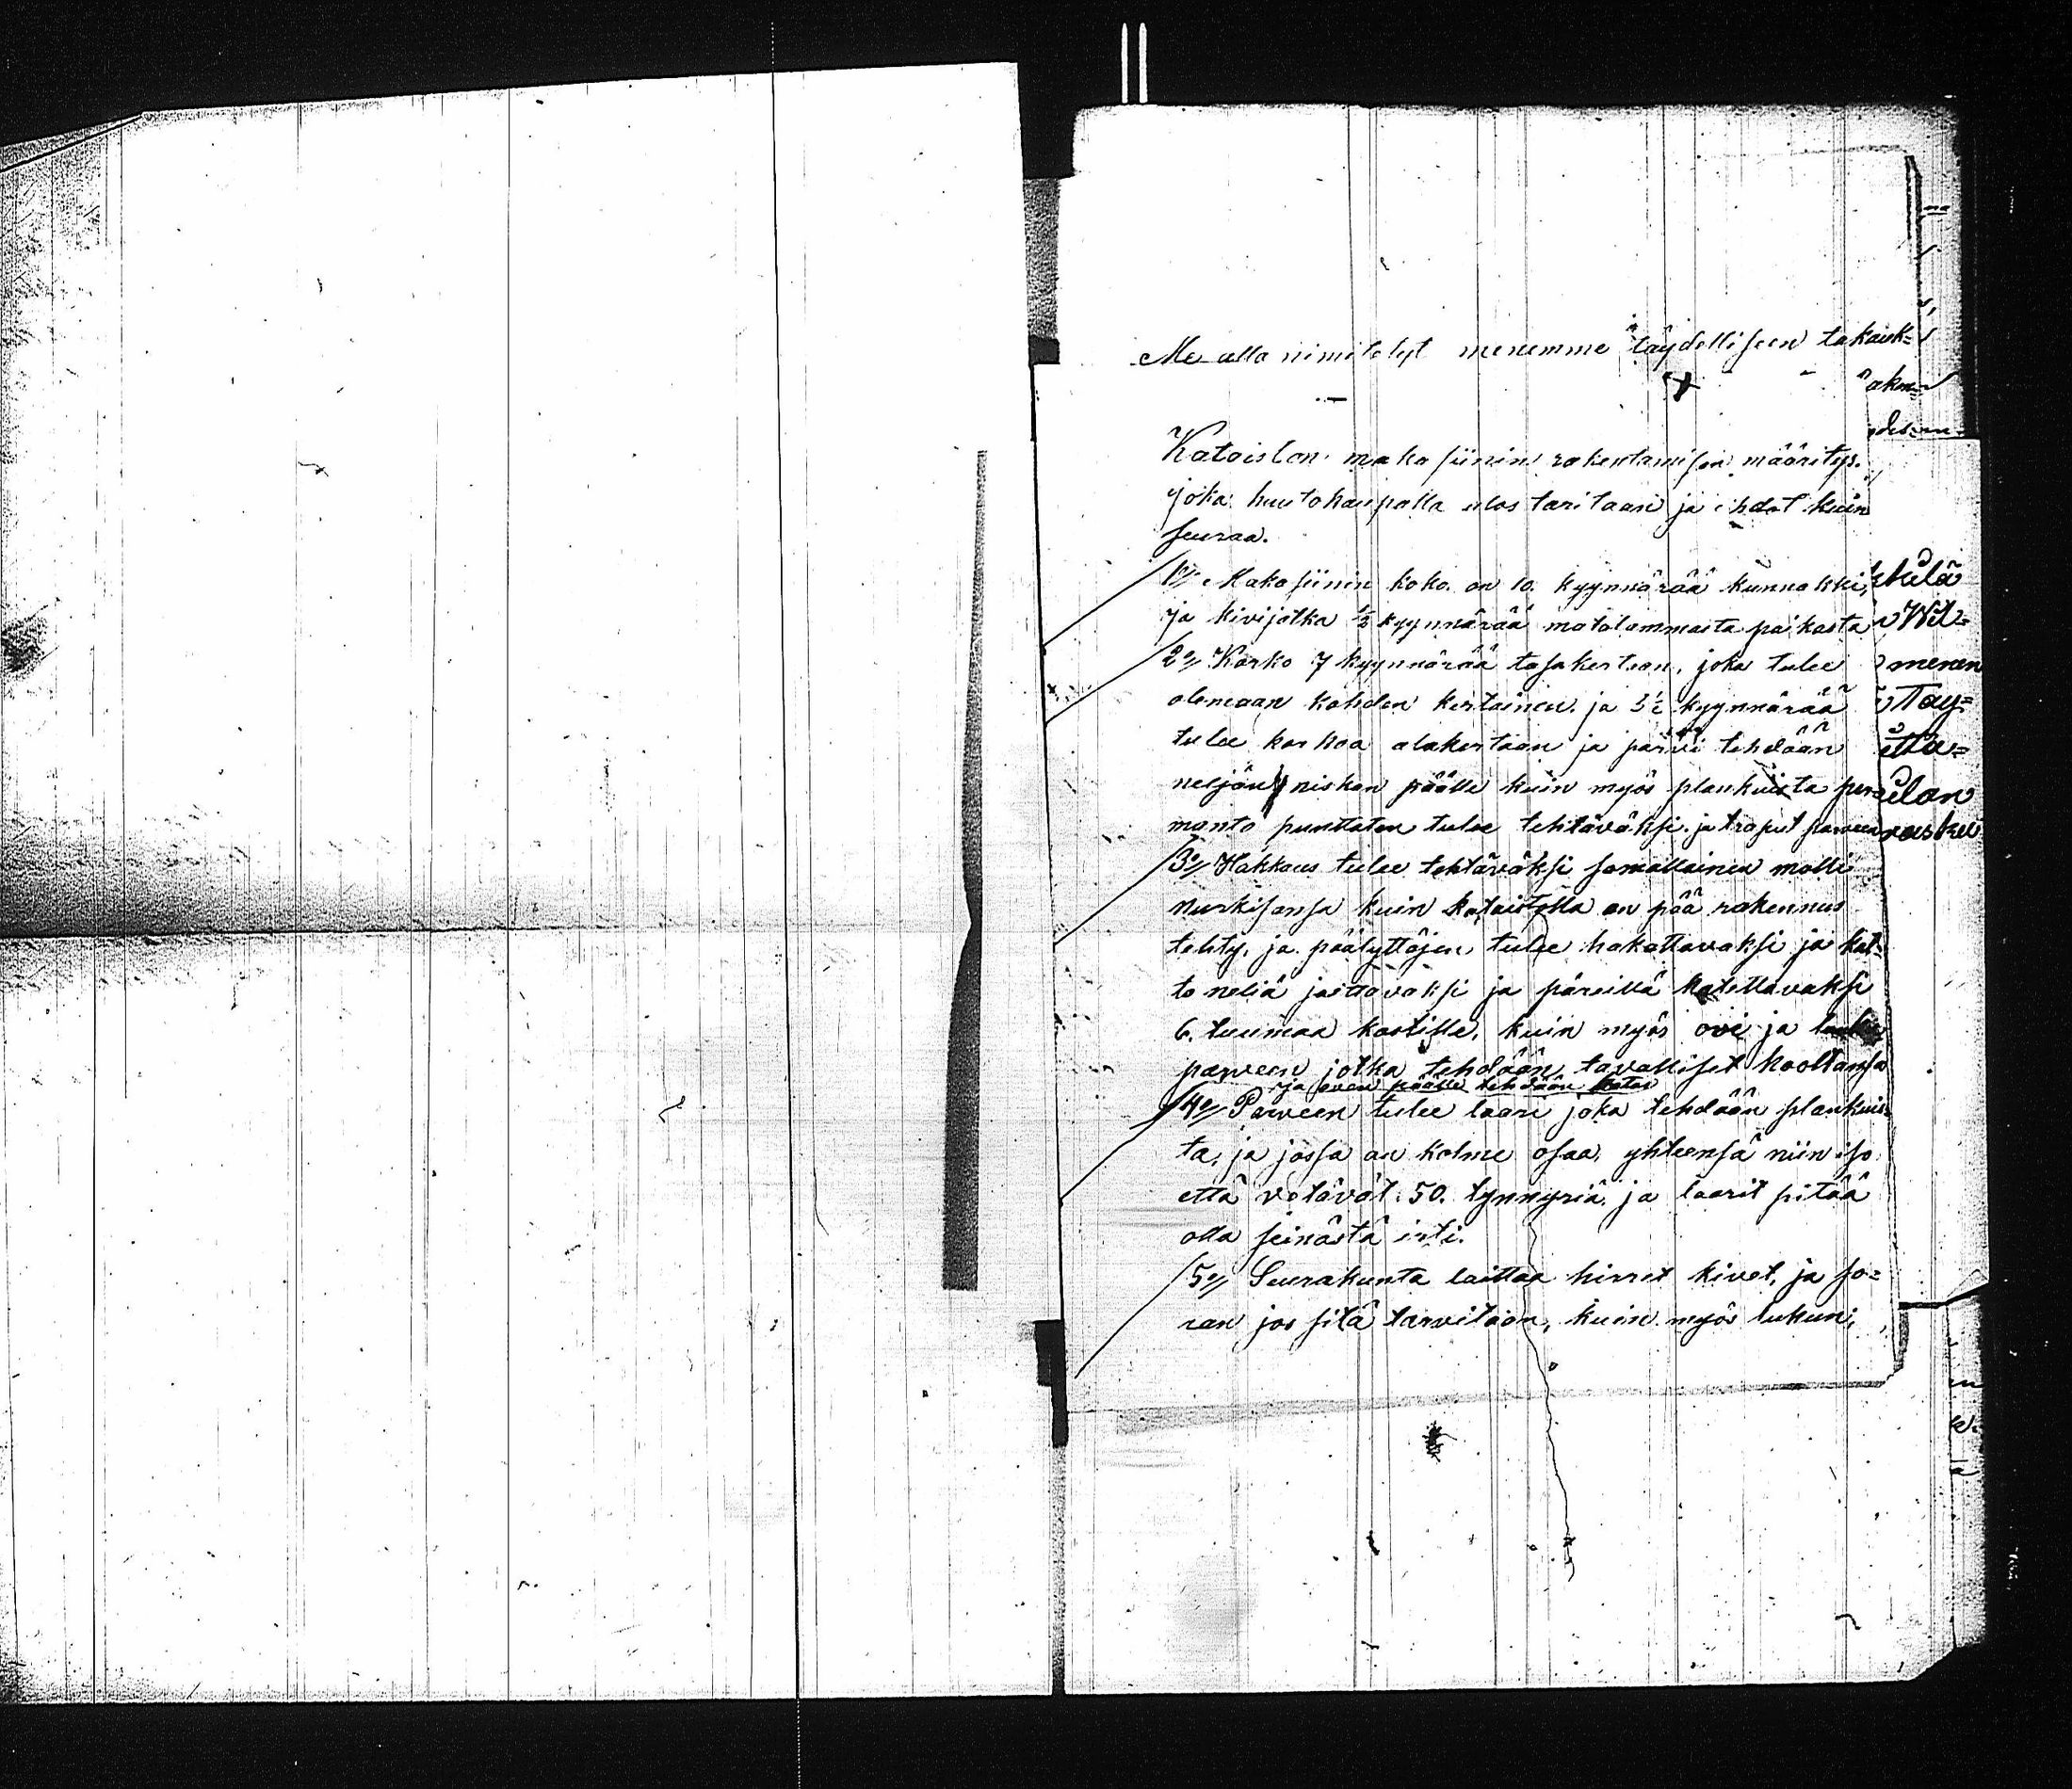 Me alla nimitetyt menemme täydelliseen takauk=
Kataiston makasiinin rakentamisen määritys.
joka huutokaupalla ulos taritaan ja ehdot kuin
seuraa.
1o/ Makasiinin koko on 10. kyynnärää kunnakki,
ja kivijalka ½ kyynnärää matalammasta paikasta
2o/ Korko 7 kyynnärää tasakertaan, joka tulee
olemaan kahden kertainen. ja 3½ kyynnärää
tulee korkoa alakertaan ja parvi tehdään
neljän niskan päälle kuin myös plankuista per
manto punttaten tulee tehtäväksi. ja traput parveen
3o/ Hakkaus tulee tehtäväksi samallainen malli
nurkisansa kuin kataistolla on pää rakennus
tehty, ja päätyttöjen tulee hakattavaksi ja kat=
to neliä jaittavaksi ja päreillä katettavaksi
6. tuumaa kastille, kuin myös ovi ja
parveen jotka tehdään tavalliset kooltansa
ja oven päälle tehdään katos
4o/ Parveen tulee laari joka tehdään plankuis
ta, ja jossa on kolme osaa, yhteensä niin iso
että vetävät 50. tynnyriä ja laarit pitää
olla seinästä irti.
5o/ Seurakunta laittaa hirret kivet, ja so=
ran jos sitä tarvitaan, kuin myös lukun,
Wil=
menen
Tay=